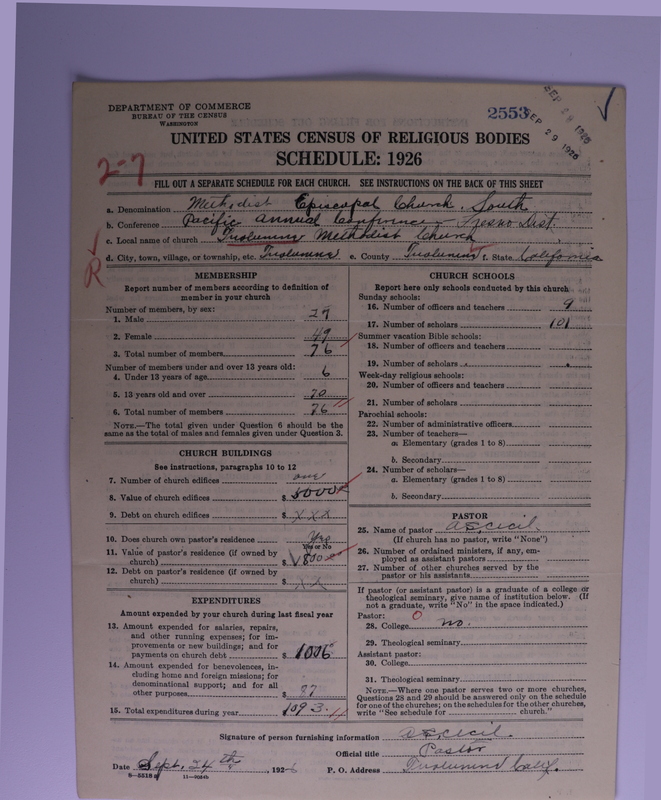 DEPARTMENT OF COMMERCE
BUREAU OF THE CENSUS
WASHINGTON
2553
SEP 28 1926
SEP 29 1926
UNITED STATES CENSUS OF RELIGIOUS BODIES
SCHEDULE: 1926
2-7
FILL OUT A SEPARATE SCHEDULE FOR EACH CHURCH. SEE INSTRUCTIONS ON THE BACK OF THIS SHEET
a. Denomination Methodist Episcopal Church, South
b. Conference Pacific Annual Conference - Fresno Dist.
c. Local name of church Tuolumne Methodist Church
d. City, town, village, or township, etc. Tuolumne e. County Tuolumne f. State California
R
MEMBERSHIP
Report number of members according to definition of
member in your church
Number of members, by sex:
1. Male 27
2. Female 49
3. Total number of members 76
Number of members under and over 13 years old:
4. Under 13 years of age 6
5. 13 years old and over 70
6. Total number of members 76
NOTE.—The total given under Question 6 should be
same as the total of males and females given under Question 3.
CHURCH BUILDINGS
See instructions, paragraphs 10 to 12
7. Number of church edifices one
8. Value of church edifices $ 5000
9. Debt on church edifices $ xxx
10. Does church own pastor's residence Yes
Yes or No
11. Value of pastor's residence (if owned by
church) $ 800
12. Debt on pastor's residence (if owned by
church) $ xx
EXPENDITURES
Amount expended by your church during last fiscal year
13. Amount expended for salaries, repairs,
and other running expenses; for im-
provements or new buildings; and for
payments on church debt $ 1006
14. Amount expended for benevolences, in-
cluding home and foreign missions; for
denominational support; and for all
other purposes $ 87
15. Total expenditures during year 1093
CHURCH SCHOOLS
Report here only schools conducted by this church
Sunday schools:
16. Number of officers and teachers 9
17. Number of scholars 101
Summer vacation Bible schools:
18. Number of officers and teachers
19. Number of scholars
Week-day religious schools:
20. Number of officers and teachers
21. Number of scholars
Parochial schools:
22. Number of administrative officers
23. Number of teachers—
a. Elementary (grades 1 to 8)
b. Secondary
24. Number of scholars—
a. Elementary (grades 1 to 8)
b. Secondary
PASTOR
25. Name of pastor A E Cecil
(If church has no pastor, write "None")
26. Number of ordained ministers, if any, em-
ployed as assistant pastors
27. Number of other churches served by the
pastor or his assistants
If pastor (or assistant pastor) is a graduate of a college or
theological seminary, give name of institution below. (If
not a graduate, write "No" in the space indicated.)
Pastor: O
28. College no.
29. Theological seminary
Assistant pastor:
30. College
31. Theological seminary
NOTE.—Where one pastor serves two or more churches,
Questions 28 and 29 should be answered only on the schedule
for one of the churches; on the schedules for the other churches,
write "See schedule for church."
Signature of person furnishing information A E Cecil
Official title Pastor
Date Sept. 24th, 1926 P. O. Address Tuolumne Calif.